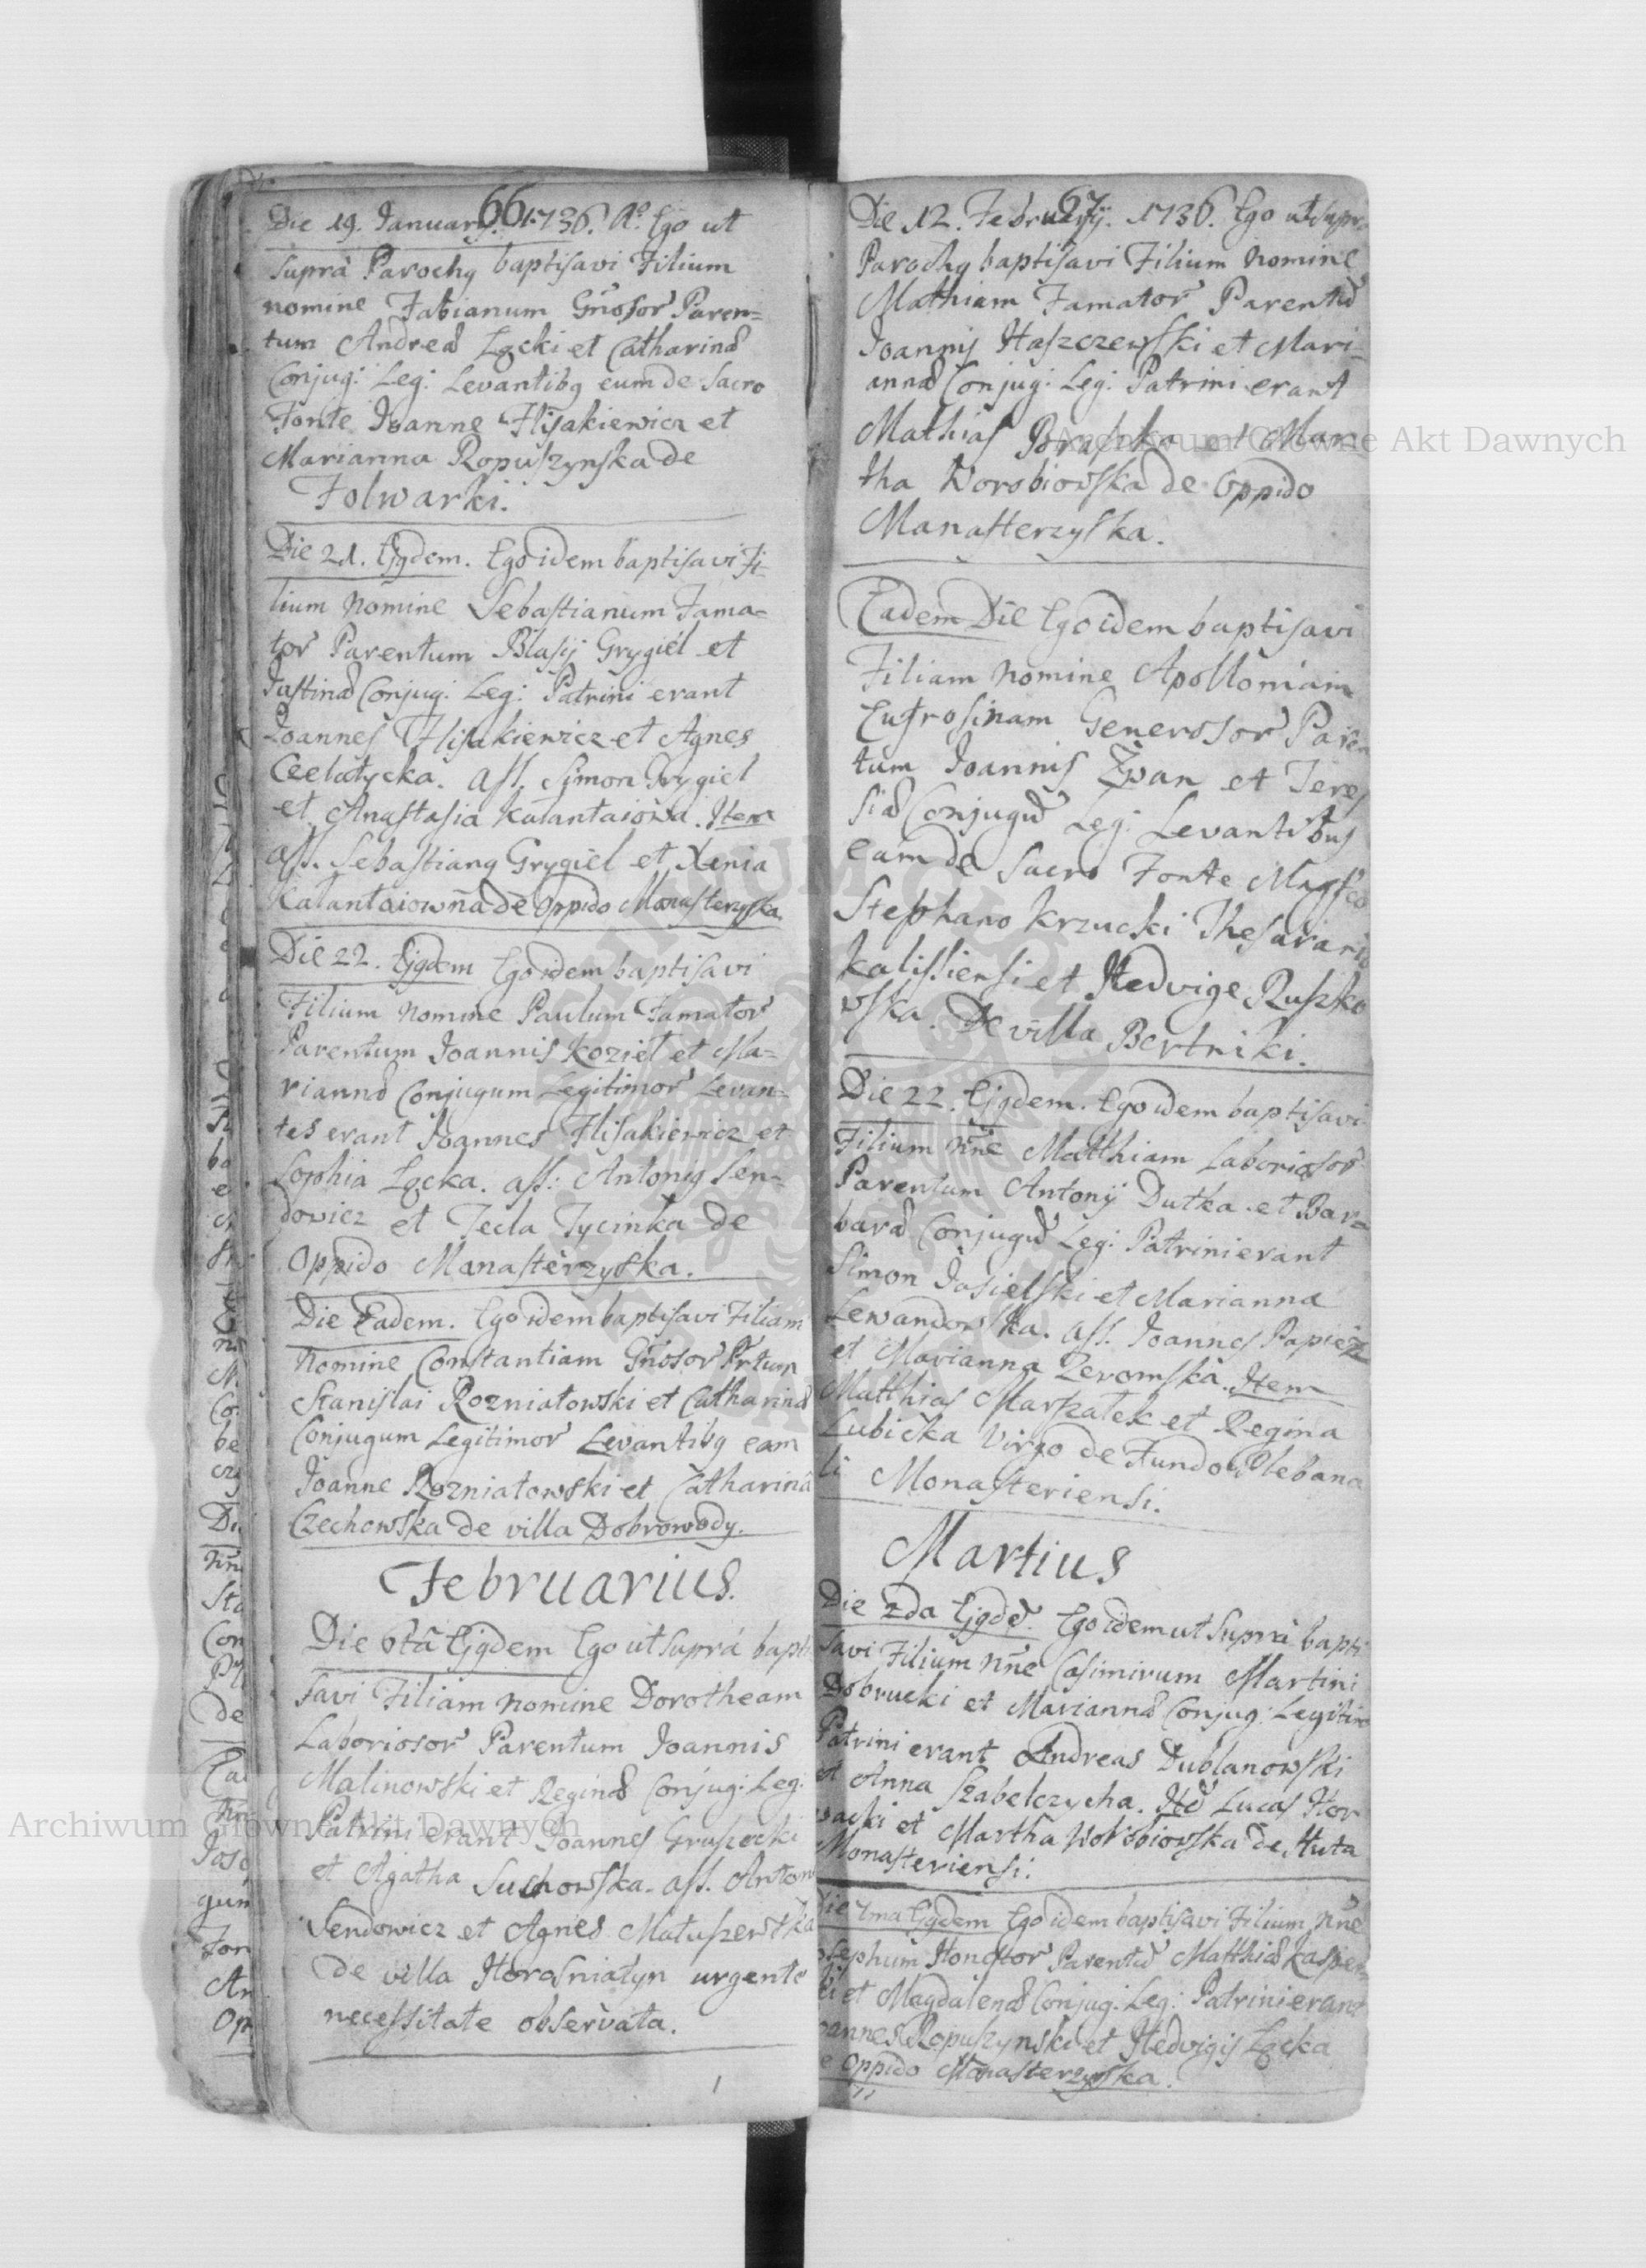 66.
Die 19. Januarij. 1736. Aº. Ego ut
supra Parochq baptisavi Filium
nomine Fabianum Gñosor Paren=
tum Andreæ Łącki et Catharinæ
Conjug: Leg: Levantibq eum de Sacro
Fonte Joanne Hlisakiewicz et
Marianna Ropuszynska de
Folwarki.
Die 21. Ejqdem. Ego idem baptisavi Fi=
lium nomine Sebastianum Fama=
tor Parentum Blasij Grygiel et
Justinæ Conjug: Leg: Patrini erant
Joannes Hlisakiewicz et Agnes
ass. Simon Grygiel
et Anastasia Kałantaiowa. Item
ass. Sebastianq Grygiel et Xenia
Kałantaiowña de Oppido Monasterzyska.
Die 22. Ejqdem Ego idem baptisavi
Filium nomine Paulum Famator
Parentum Joannis Kozieł et Ma=
riannæ Conjugum Legitimor Levan=
tes erant Joannes Hlisakiewicz et
Sophia Łącka. ass: Antoniq Sen=
dowicz et Tecla Tycinka de
Oppido Manasterzyska.
Die Eadem. Ego idem baptisavi Filiam
nomine Constantiam Gñosor Prtum
Stanislai Rozniatowski et Catharinæ
Conjugum Legitimor Levantibq eam
Joanne Rozniatowski et Catharina
Czechowska de villa Dobrowody.
Februarius.
Die 6tâ Ejqdem Ego ut supra bapti
savi Filiam nomine Dorotheam
Laboriosor Parentum Joannis
Malinowski et Reginæ Conjug: Leg:
Patrini erant Joannes Gruszecki
et Agatha Suchowska. ass. Anton
Sendowicz et Agnes Matuszewska
de villa Horosniatyn urgente
necessitate observata.
67
Die 12. Februarij. 1736. Ego ut supr
Parochq baptisavi Filium nomine
Mathiam Famator Parentũ
Joannis Haszczewski et Mari=
annæ Conjug: Leg: Patrini erant
Mathias Braszka et Mar=
tha Worobiowska de Oppido
Manasterzyska.
Eadem Die Ego idem baptisavi
Filiam nomine Apolloniam
Eufrosinam Generosor Paren
tum Joannis Zwan et Teres
siæ Conjugũ Leg: Levantibus
eam de Sacro Fonte Magfco
Stephano Krzucki Thesaurario
Kalissiensi et Hedvige Ruszko
wska. De villa Bertniki.
Die 22. Ejqdem. Ego idem baptisavi
Filium nñe Matthiam Laboriosor
Parentum Antonij Dutka et Bar=
baræ Conjugũ Leg: Patrini erant
Simon Jasielski et Marianna
Lewandowska. ass. Joannes Papież
et Marianna Zeromska. Item
Matthias Marszałek et Regina
Lubicka Virgo de Fundo Plebana
li Monasteriensi.
Martius
Die 2da Ejqdẽ. Ego idem ut supra bapti
savi Filium nñe Casimirum Martini
Dobrucki et Mariannæ Conjug: Legitim
Patrini erant Andreas Dublanowski
et Anna Szabelczycha. Itẽ Lucas Hor
wacki et Martha Worobiowska de Huta
Monasteriensi.
Die 7ma Ejqdem Ego idem baptisavi Filium nñe
osephum Honestor Parentũ Matthiæ Kasper=
ki et Magdalenæ Conjug: Leg: Patrini erant
oannes Ropuszynski et Hedvigis Łącka
e Oppido Monasterzyska.
Archiwum Główne Akt Dawnych
Archiwum Główne Akt Dawnych